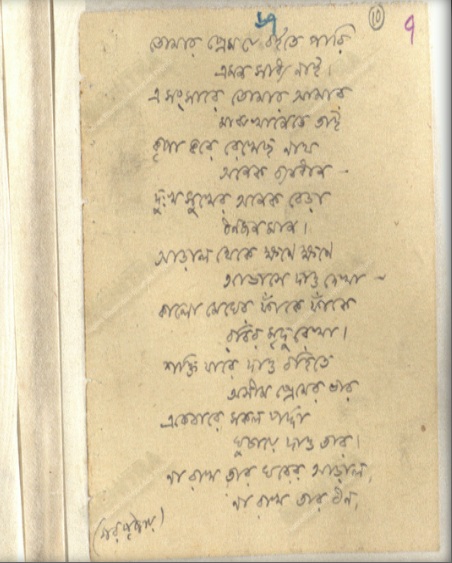 ৬৭ ⑩ ৭
তোমার প্রেম যে বইতে পারি
এমন সাধ্য নাই।
এ সংসারে তোমার আমার
মাঝখানেতে তাই
কৃপা করে রেখেছ নাথ
অনেক ব্যবধান –
দুঃখ সুখের অনেক বেড়া
ধনজনমান।
আড়াল থেকে ক্ষণে ক্ষণে
আভাসে দাও দেখা –
কালো মেঘের ফাঁকে ফাঁকে
রবির মৃদু রেখা।
শক্তি যারে দাও বহিতে
অসীম প্রেমের ভার
একেবারে সকল পর্দা
ঘুচায়ে দাও তার।
না রাখ তার ঘরের আড়াল,
না রাখ তার ধন,
(পরপৃষ্ঠায়)